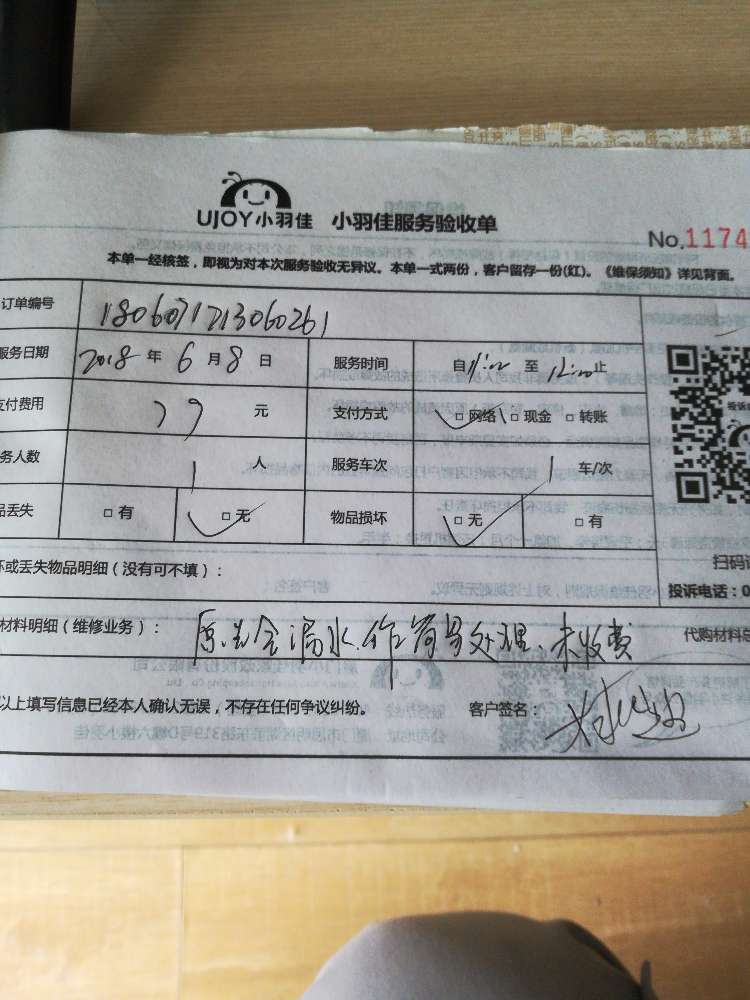 UJOY小羽佳 小羽佳服务验收单
No.1174
本单一经核签，即视为对本次服务验收无异议。本单一式两份，客户留存一份(红)。《维保须知》详见背面。
订单编号 1806071213060261
服务日期 2018 年 6 月 8 日 服务时间 自11:00 至 12:00止
支付费用 79 元 支付方式 □网络 □现金 □转账
务人数 1 人 服务车次 1 车/次
品丢失 □有 □无 物品损坏 □无 □有
坏或丢失物品明细（没有可不填）：
扫码
投诉电话：0
材料明细（维修业务）： 漏水. 处理、未收费
代购材料总
以上填写信息已经本人确认无误，不存在任何争议纠纷。 客户签名：